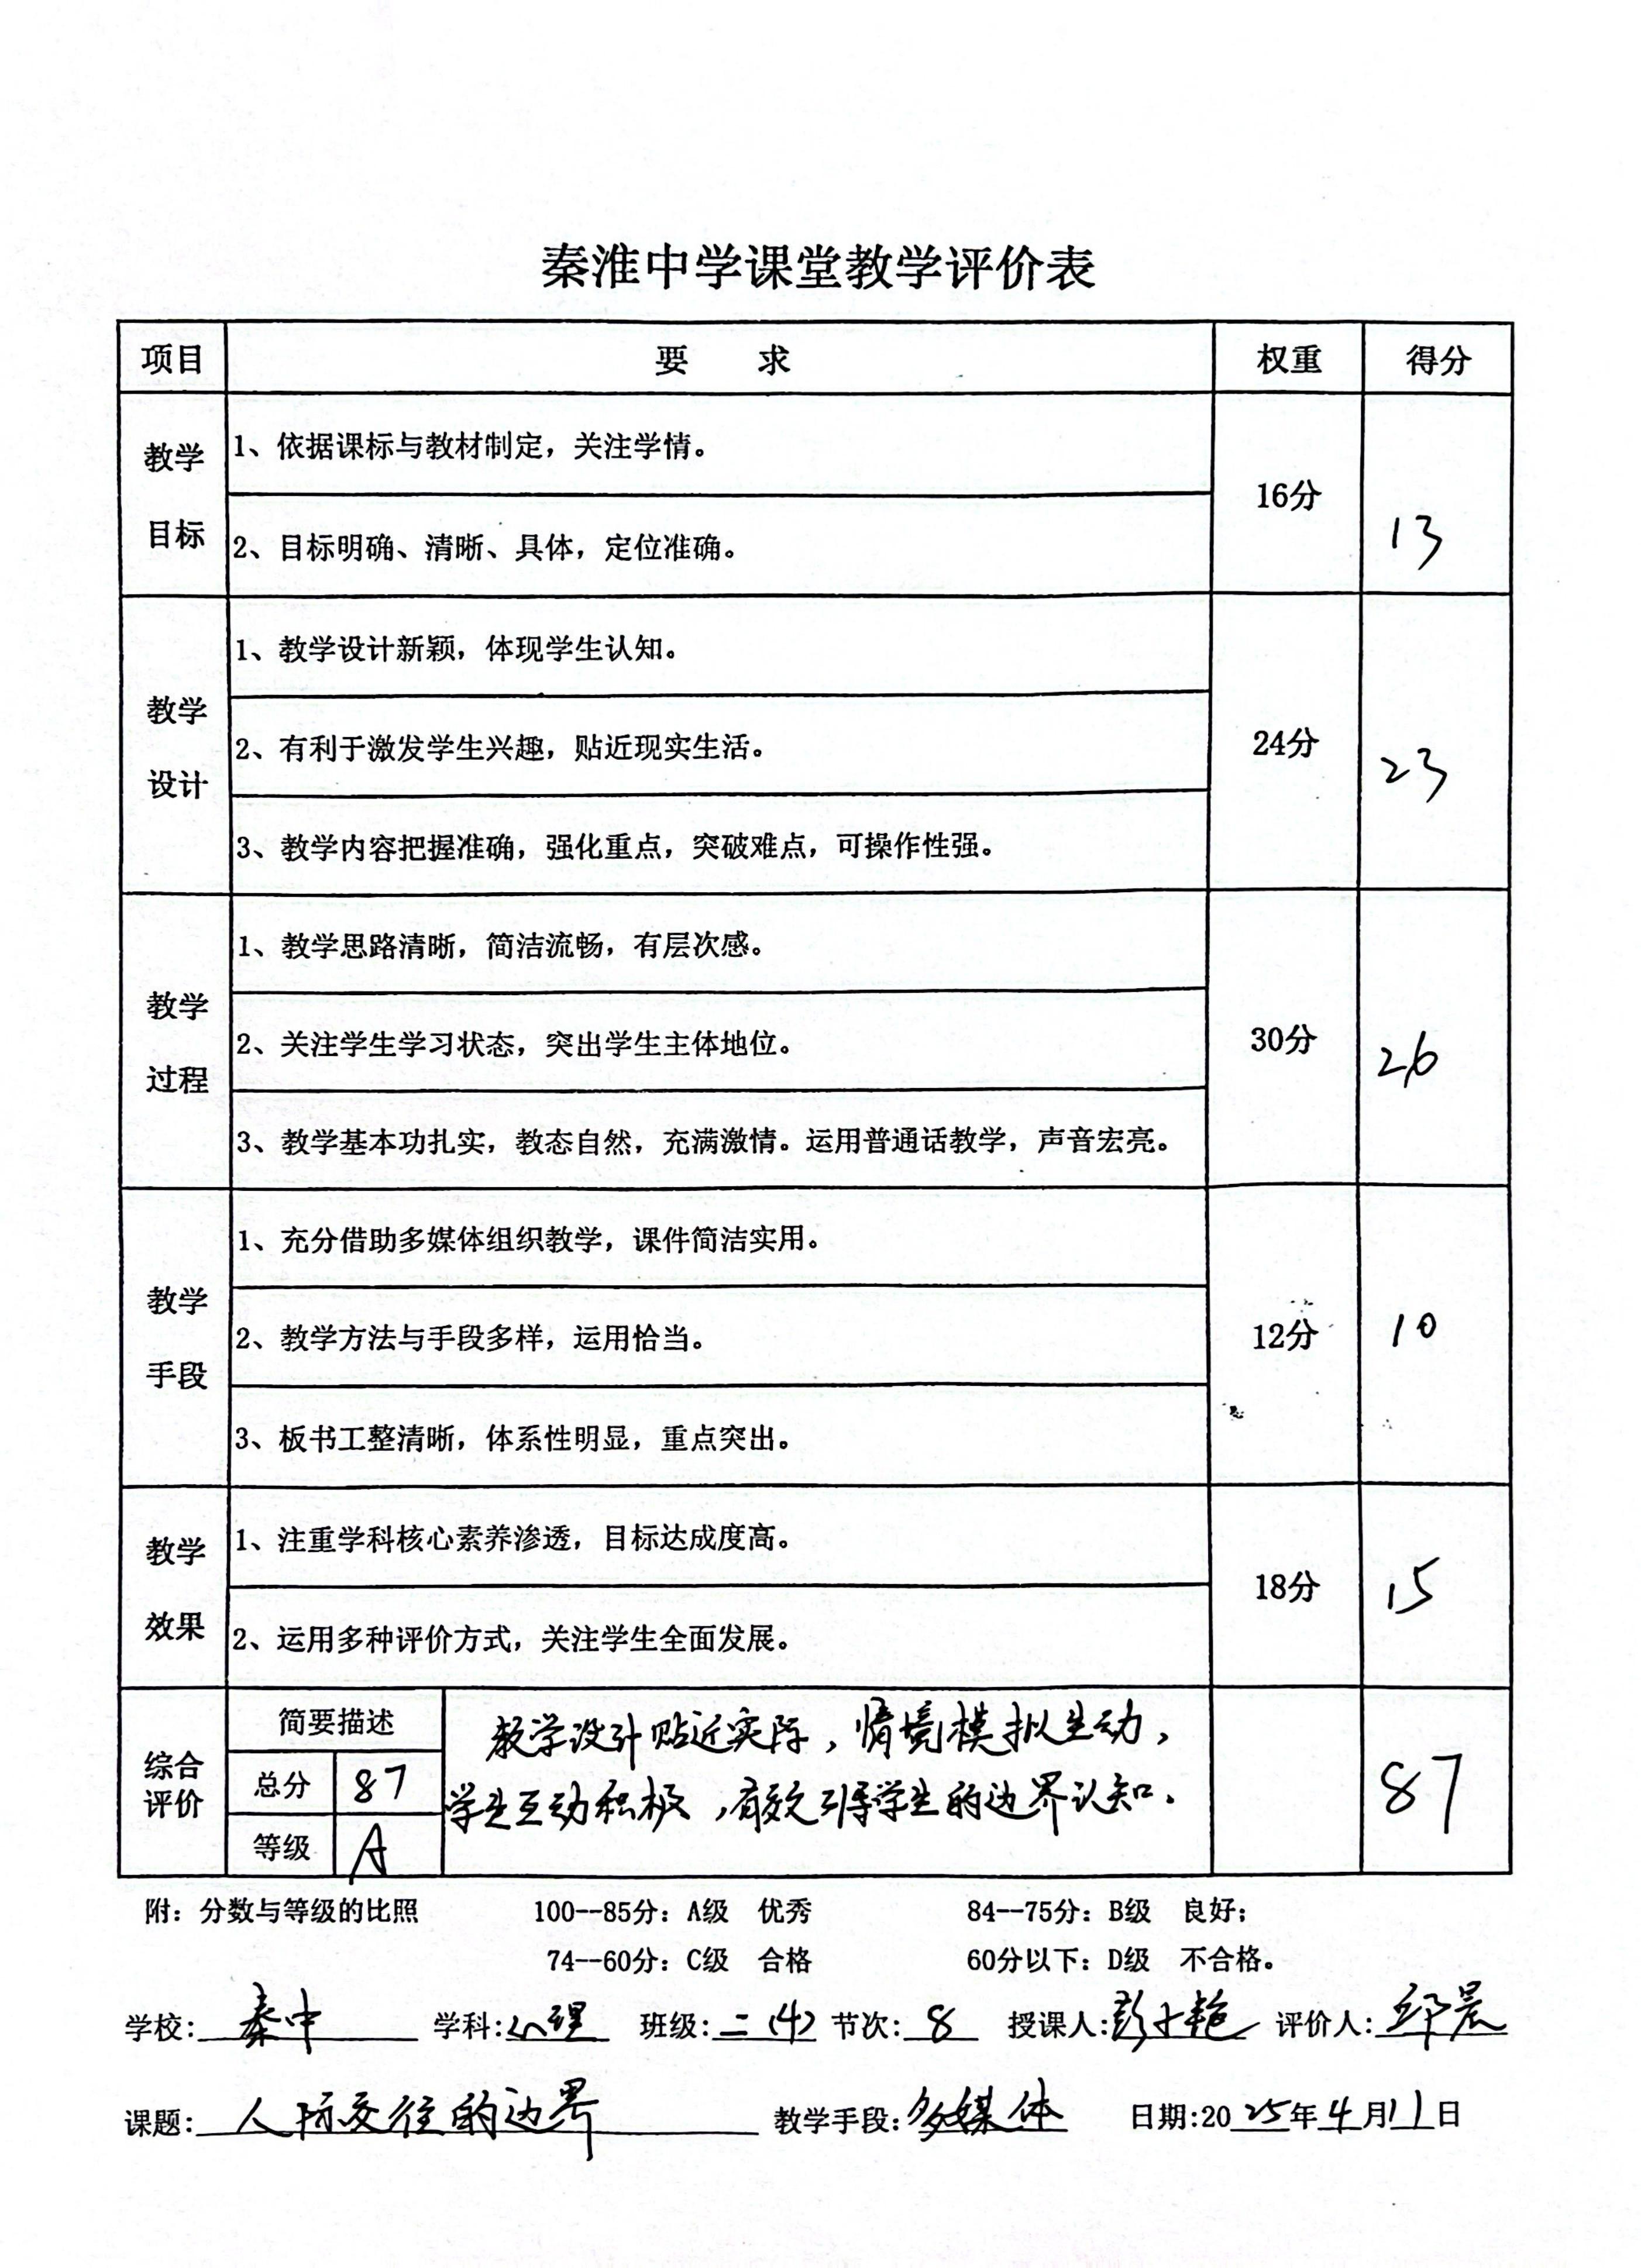 秦淮中学课堂教学评价表
项目 要 求 权重 得分
教学目标
1、依据课标与教材制定，关注学情。
2、目标明确、清晰、具体，定位准确。
16分 13
教学设计
1、教学设计新颖，体现学生认知。
2、有利于激发学生兴趣，贴近现实生活。
3、教学内容把握准确，强化重点，突破难点，可操作性强。
24分 23
教学过程
1、教学思路清晰，简洁流畅，有层次感。
2、关注学生学习状态，突出学生主体地位。
3、教学基本功扎实，教态自然，充满激情。运用普通话教学，声音宏亮。
30分 26
教学手段
1、充分借助多媒体组织教学，课件简洁实用。
2、教学方法与手段多样，运用恰当。
3、板书工整清晰，体系性明显，重点突出。
12分 10
教学效果
1、注重学科核心素养渗透，目标达成度高。
2、运用多种评价方式，关注学生全面发展。
18分 15
综合评价
简要描述
总分 87
等级 A
教学设计贴近实际，情境模拟生动，
学生互动积极，有效引导学生的边界认知.
87
附：分数与等级的比照 100--85分：A级 优秀 84--75分：B级 良好；
74--60分：C级 合格 60分以下：D级 不合格。
学校: 秦中 学科: 心理 班级: 二(4) 节次: 8 授课人: 彭 艳 评价人: 邱晨
课题: 人际交往的边界 教学手段: 多媒体 日期:2025年4月11日